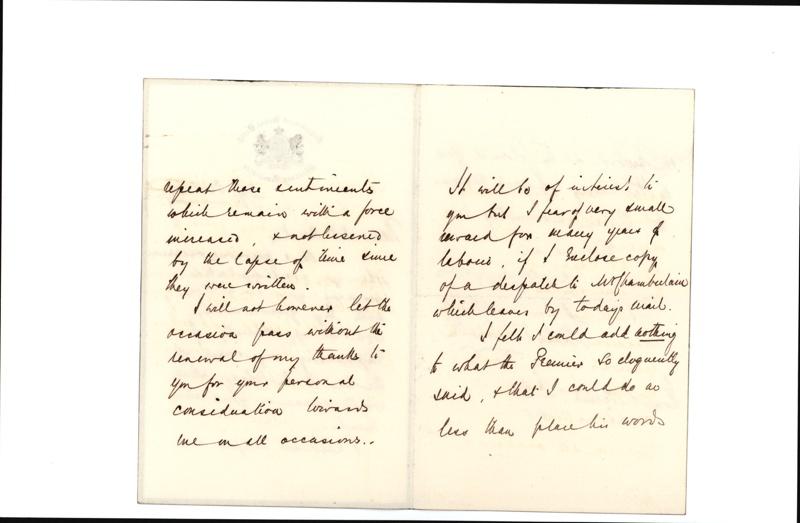 repeat those sentiments
which remain with a force
increased, & not lessened
by the lapse of time since
they were written.
I will not however let the
occasion pass without the
renewal of my thanks to
you for your personal
consideration towards
me on all occasions..
It will be of interest to
you but I fear of very small
reward for many years of
labour, if I enclose copy
of a despatch to Mr Chamberlain
which leaves by todays mail.
I felt I could add nothing
to what the Premier so eloquently
said, & that I could do no
less than place his words